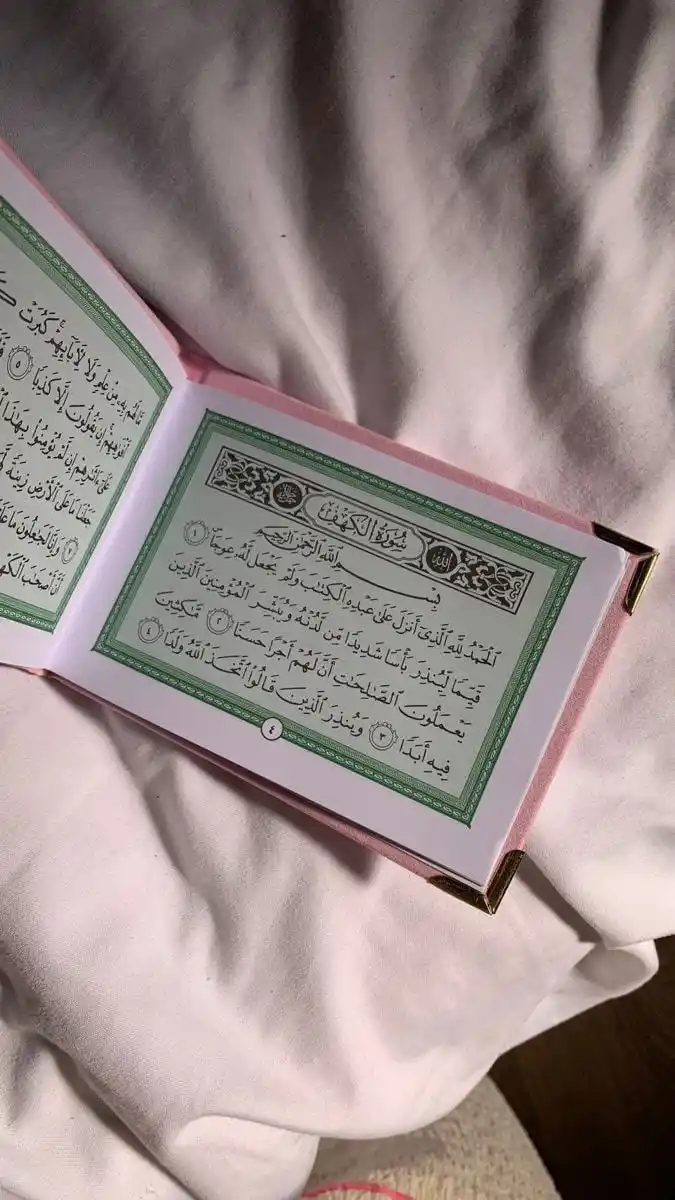 سُورَةُ الكَهْفِ
الله
بِسْمِ ٱللَّهِ ٱلرَّحْمَٰنِ ٱلرَّحِيمِ
ٱلْحَمْدُ لِلَّهِ ٱلَّذِىٓ أَنزَلَ عَلَىٰ عَبْدِهِ ٱلْكِتَٰبَ وَلَمْ يَجْعَل لَّهُۥ عِوَجَاۜ ١
قَيِّمًا لِّيُنذِرَ بَأْسًا شَدِيدًا مِّن لَّدُنْهُ وَيُبَشِّرَ ٱلْمُؤْمِنِينَ ٱلَّذِينَ
يَعْمَلُونَ ٱلصَّٰلِحَٰتِ أَنَّ لَهُمْ أَجْرًا حَسَنًا ٢ مَّٰكِثِينَ
فِيهِ أَبَدًا ٣ وَيُنذِرَ ٱلَّذِينَ قَالُوا۟ ٱتَّخَذَ ٱللَّهُ وَلَدًا ٤
٤
مَّا لَهُم بِهِۦ مِنْ عِلْمٍ وَلَا لِءَابَآئِهِمْ كَبُرَتْ
أَفْوَٰهِهِمْ إِن يَقُولُونَ إِلَّا كَذِبًا ٥
عَلَىٰٓ ءَاثَٰرِهِمْ إِن لَّمْ يُؤْمِنُوا۟ بِهَٰذَا
جَعَلْنَا مَا عَلَى ٱلْأَرْضِ زِينَةً
٧ وَإِنَّا لَجَٰعِلُونَ مَا
أَنَّ أَصْحَٰبَ